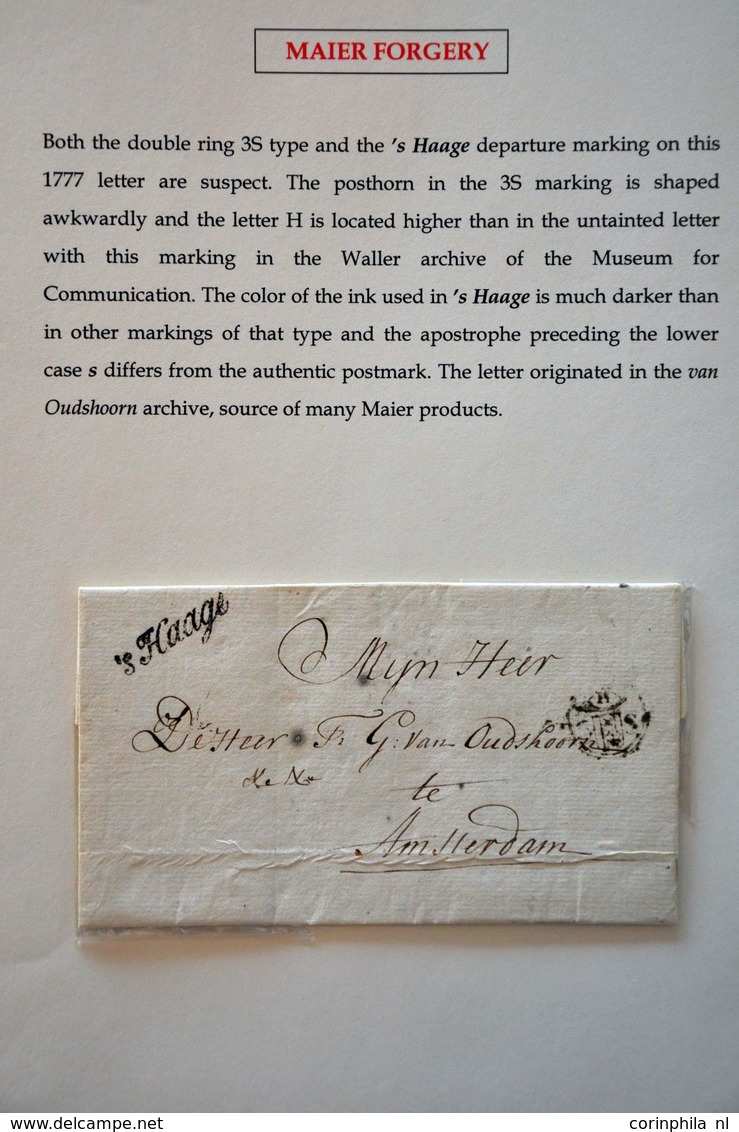 MAIER FORGERY
Both the double ring 3S type and the ’s Haage departure marking on this
1777 letter are suspect. The posthorn in the 3S marking is shaped
awkwardly and the letter H is located higher than in the untainted letter
with this marking in the Waller archive of the Museum for
Communication. The color of the ink used in ’s Haage is much darker than
in other markings of that type and the apostrophe preceding the lower
case s differs from the authentic postmark. The letter originated in the van
Oudshoorn archive, source of many Maier products.
's Haage
Mijn Heer
De Heer Fr G: van Oudshoorn
te
Amsterdam
H
www.delcampe.net
corinphila nl